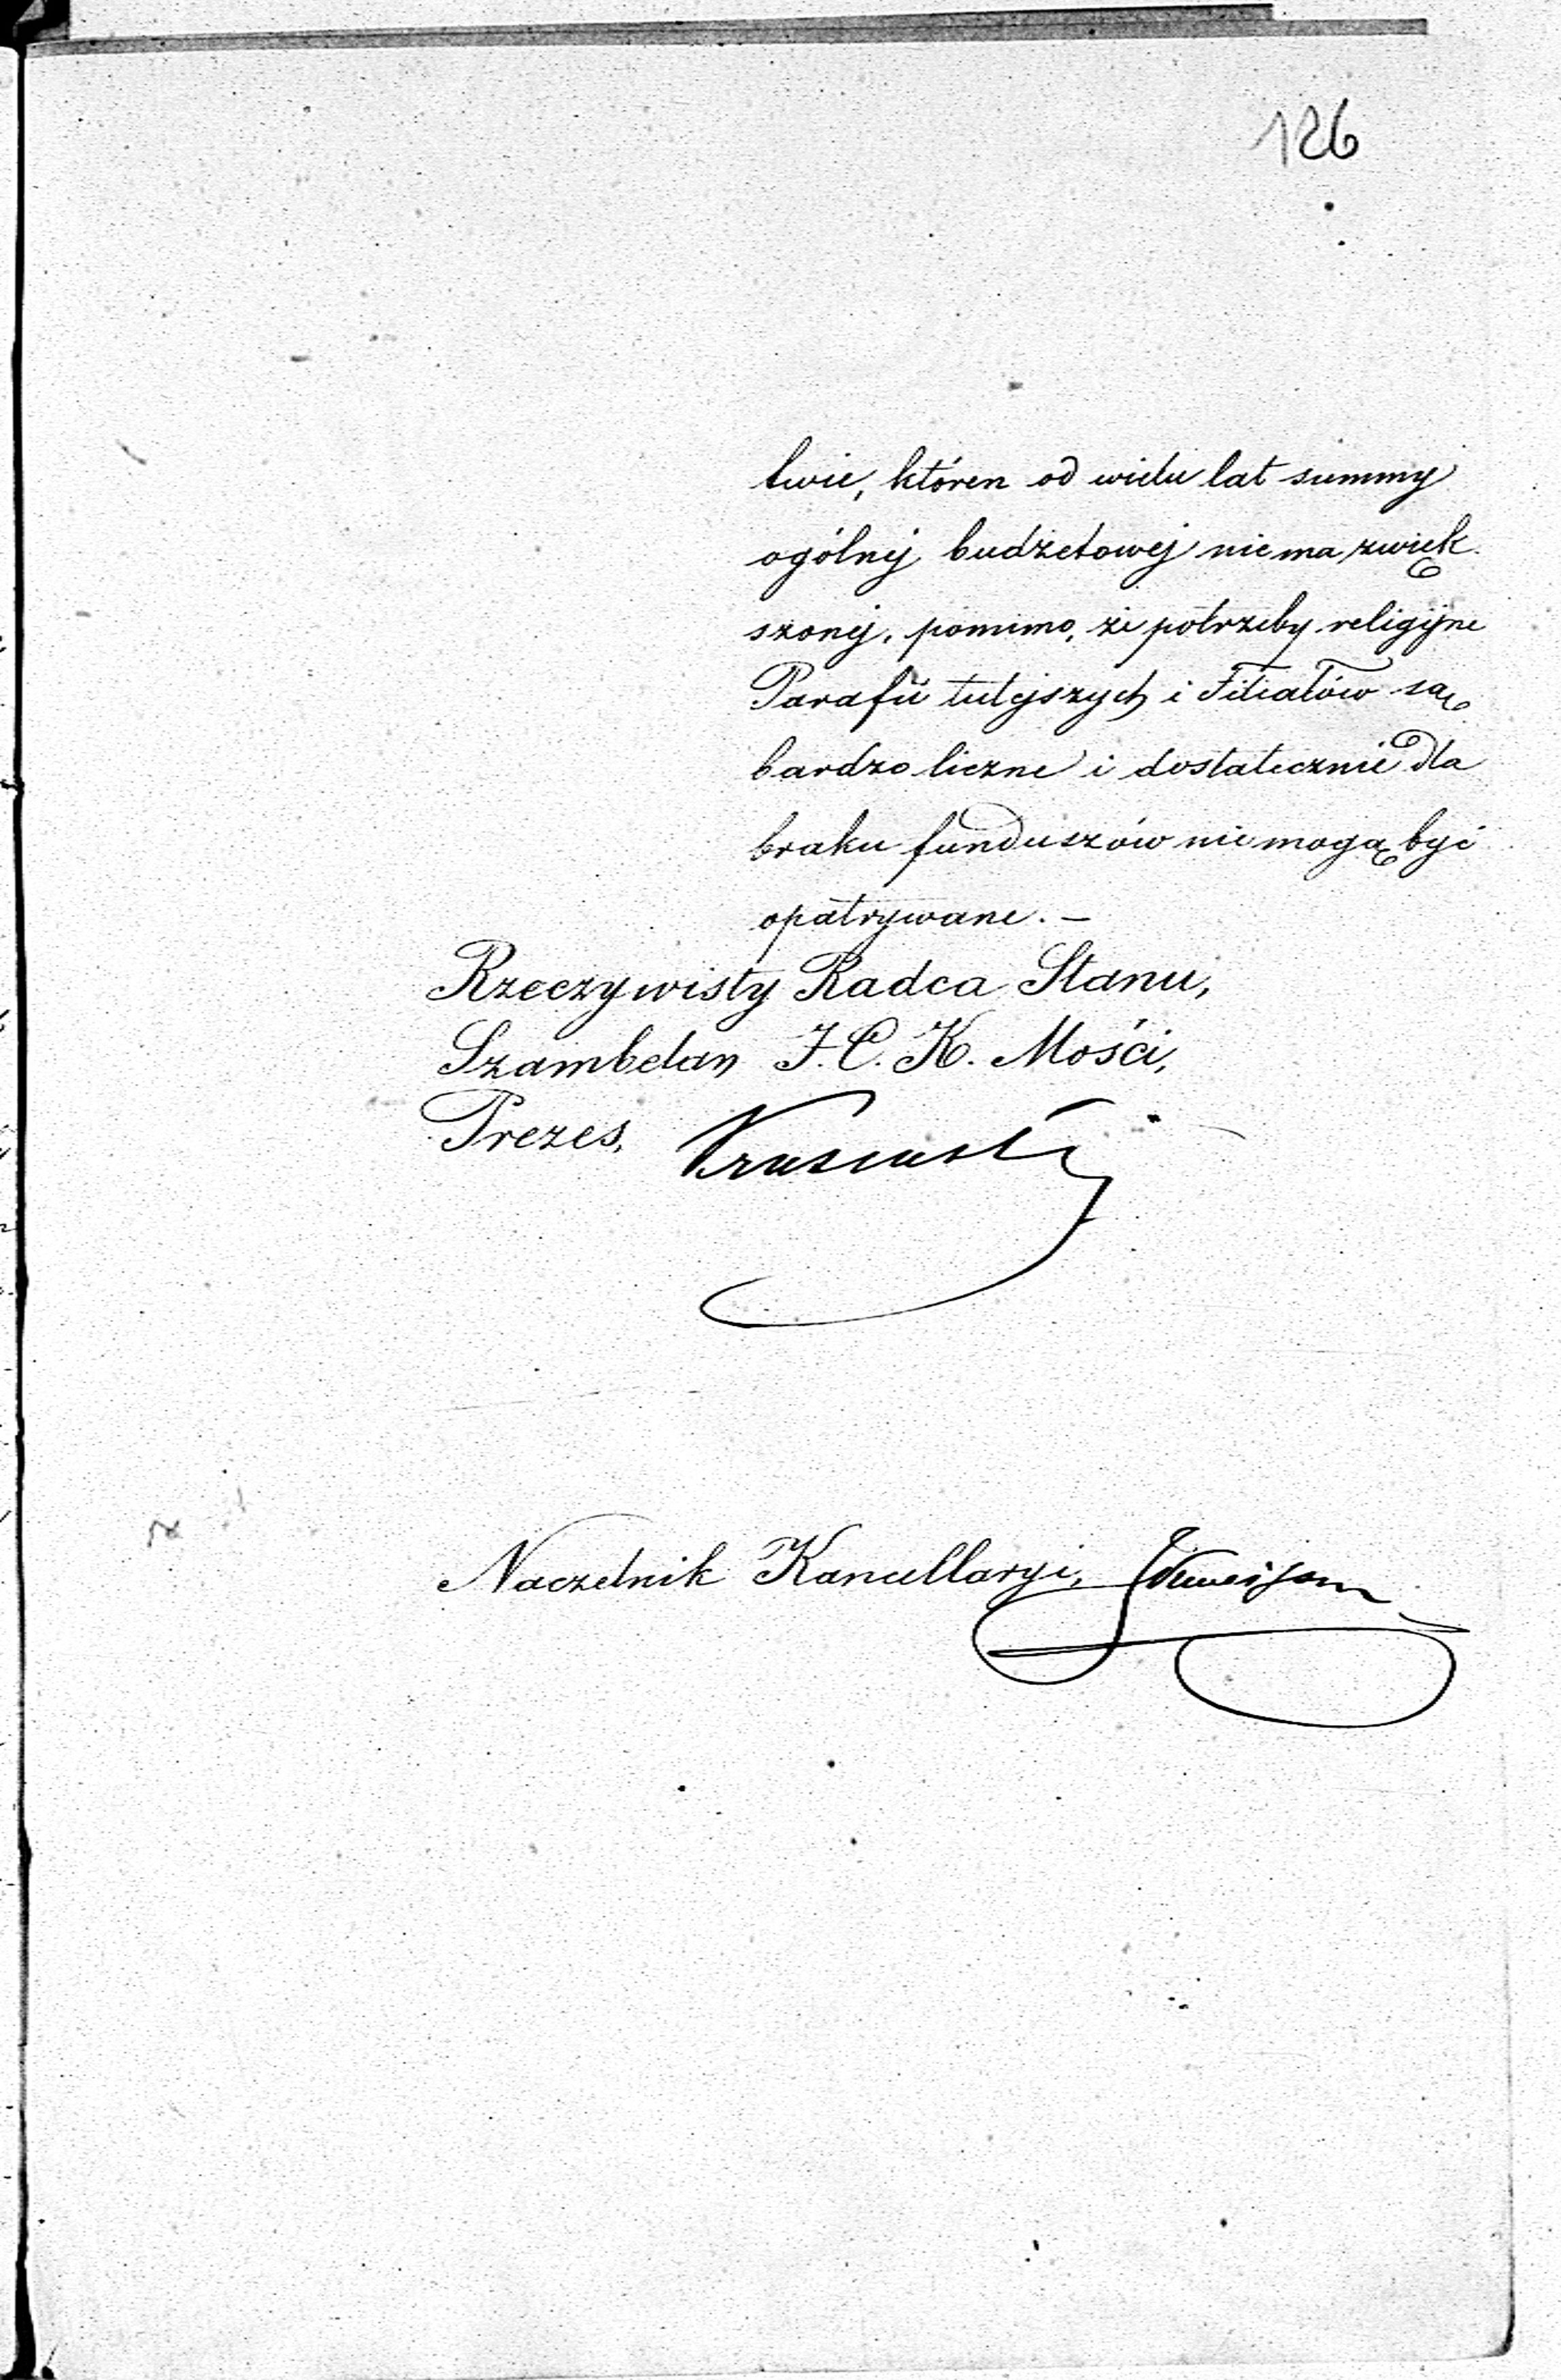 126
twie, któren od wielu lat summy
ogólnej budżetowej nie ma zwięk
szonej, pomimo, że potrzeby religijne
Parafii tutejszych i Filiałów są
bardzo liczne i dostatecznie dla
braku funduszów nie mogą być
opatrywane. —
Rzeczywisty Radca Stanu,
Szambelan J. C. K. Mości,
Prezes,
Naczelnik Kancellaryi,